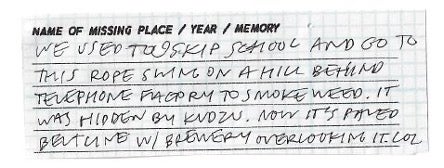 NAME OF MISSING PLACE / YEAR / MEMORY
WE USED TO SKIP SCHOOL AND GO TO
THIS ROPE SWING ON A HILL BEHIND
TELEPHONE FACTORY TO SMOKE WEED. IT
WAS HIDDEN BY KUDZU. NOW IT'S PAVED
BELTLINE W/ BREWERY OVERLOOKING IT. LOL